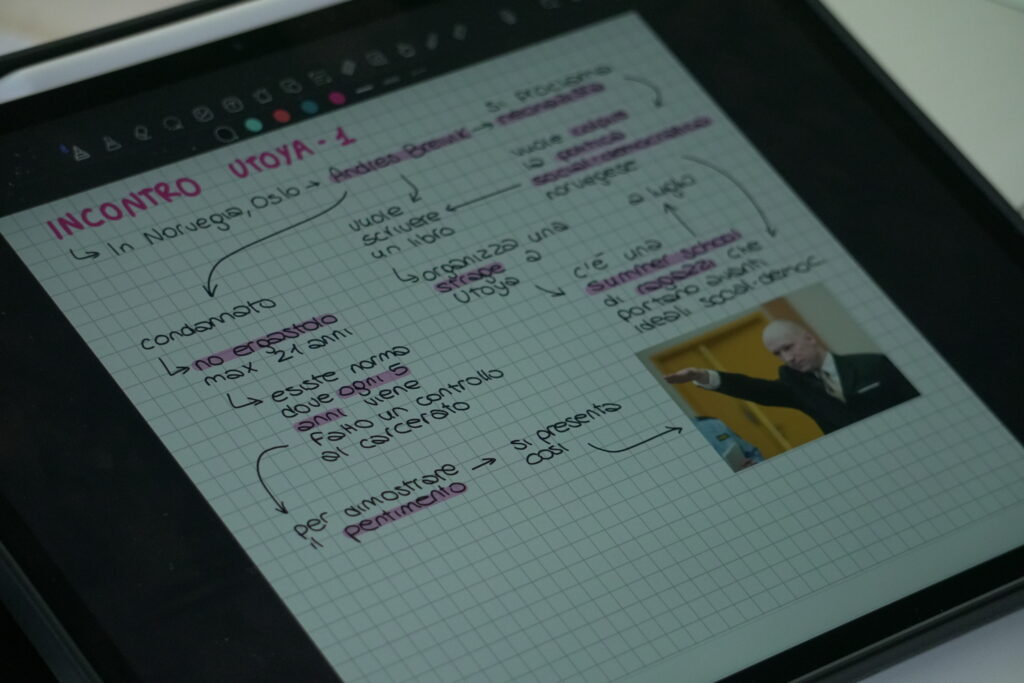 INCONTRO UTOYA - 1
↳ In Norvegia, Oslo → Andres Breivik → si proclama
neonazista
vuole colpire
la partita
social-democratico
norvegese
vuole
scrivere
un libro
↳ organizza una
strage a
Utoya
c'è una
summer school
di ragazzi che
portano avanti
ideali social-democ...
a luglio
condannato
↳ no ergastolo
max 21 anni
↳ esiste norma
dove ogni 5
anni viene
fatto un controllo
al carcerato
per dimostrare
il pentimento
→ si presenta
così